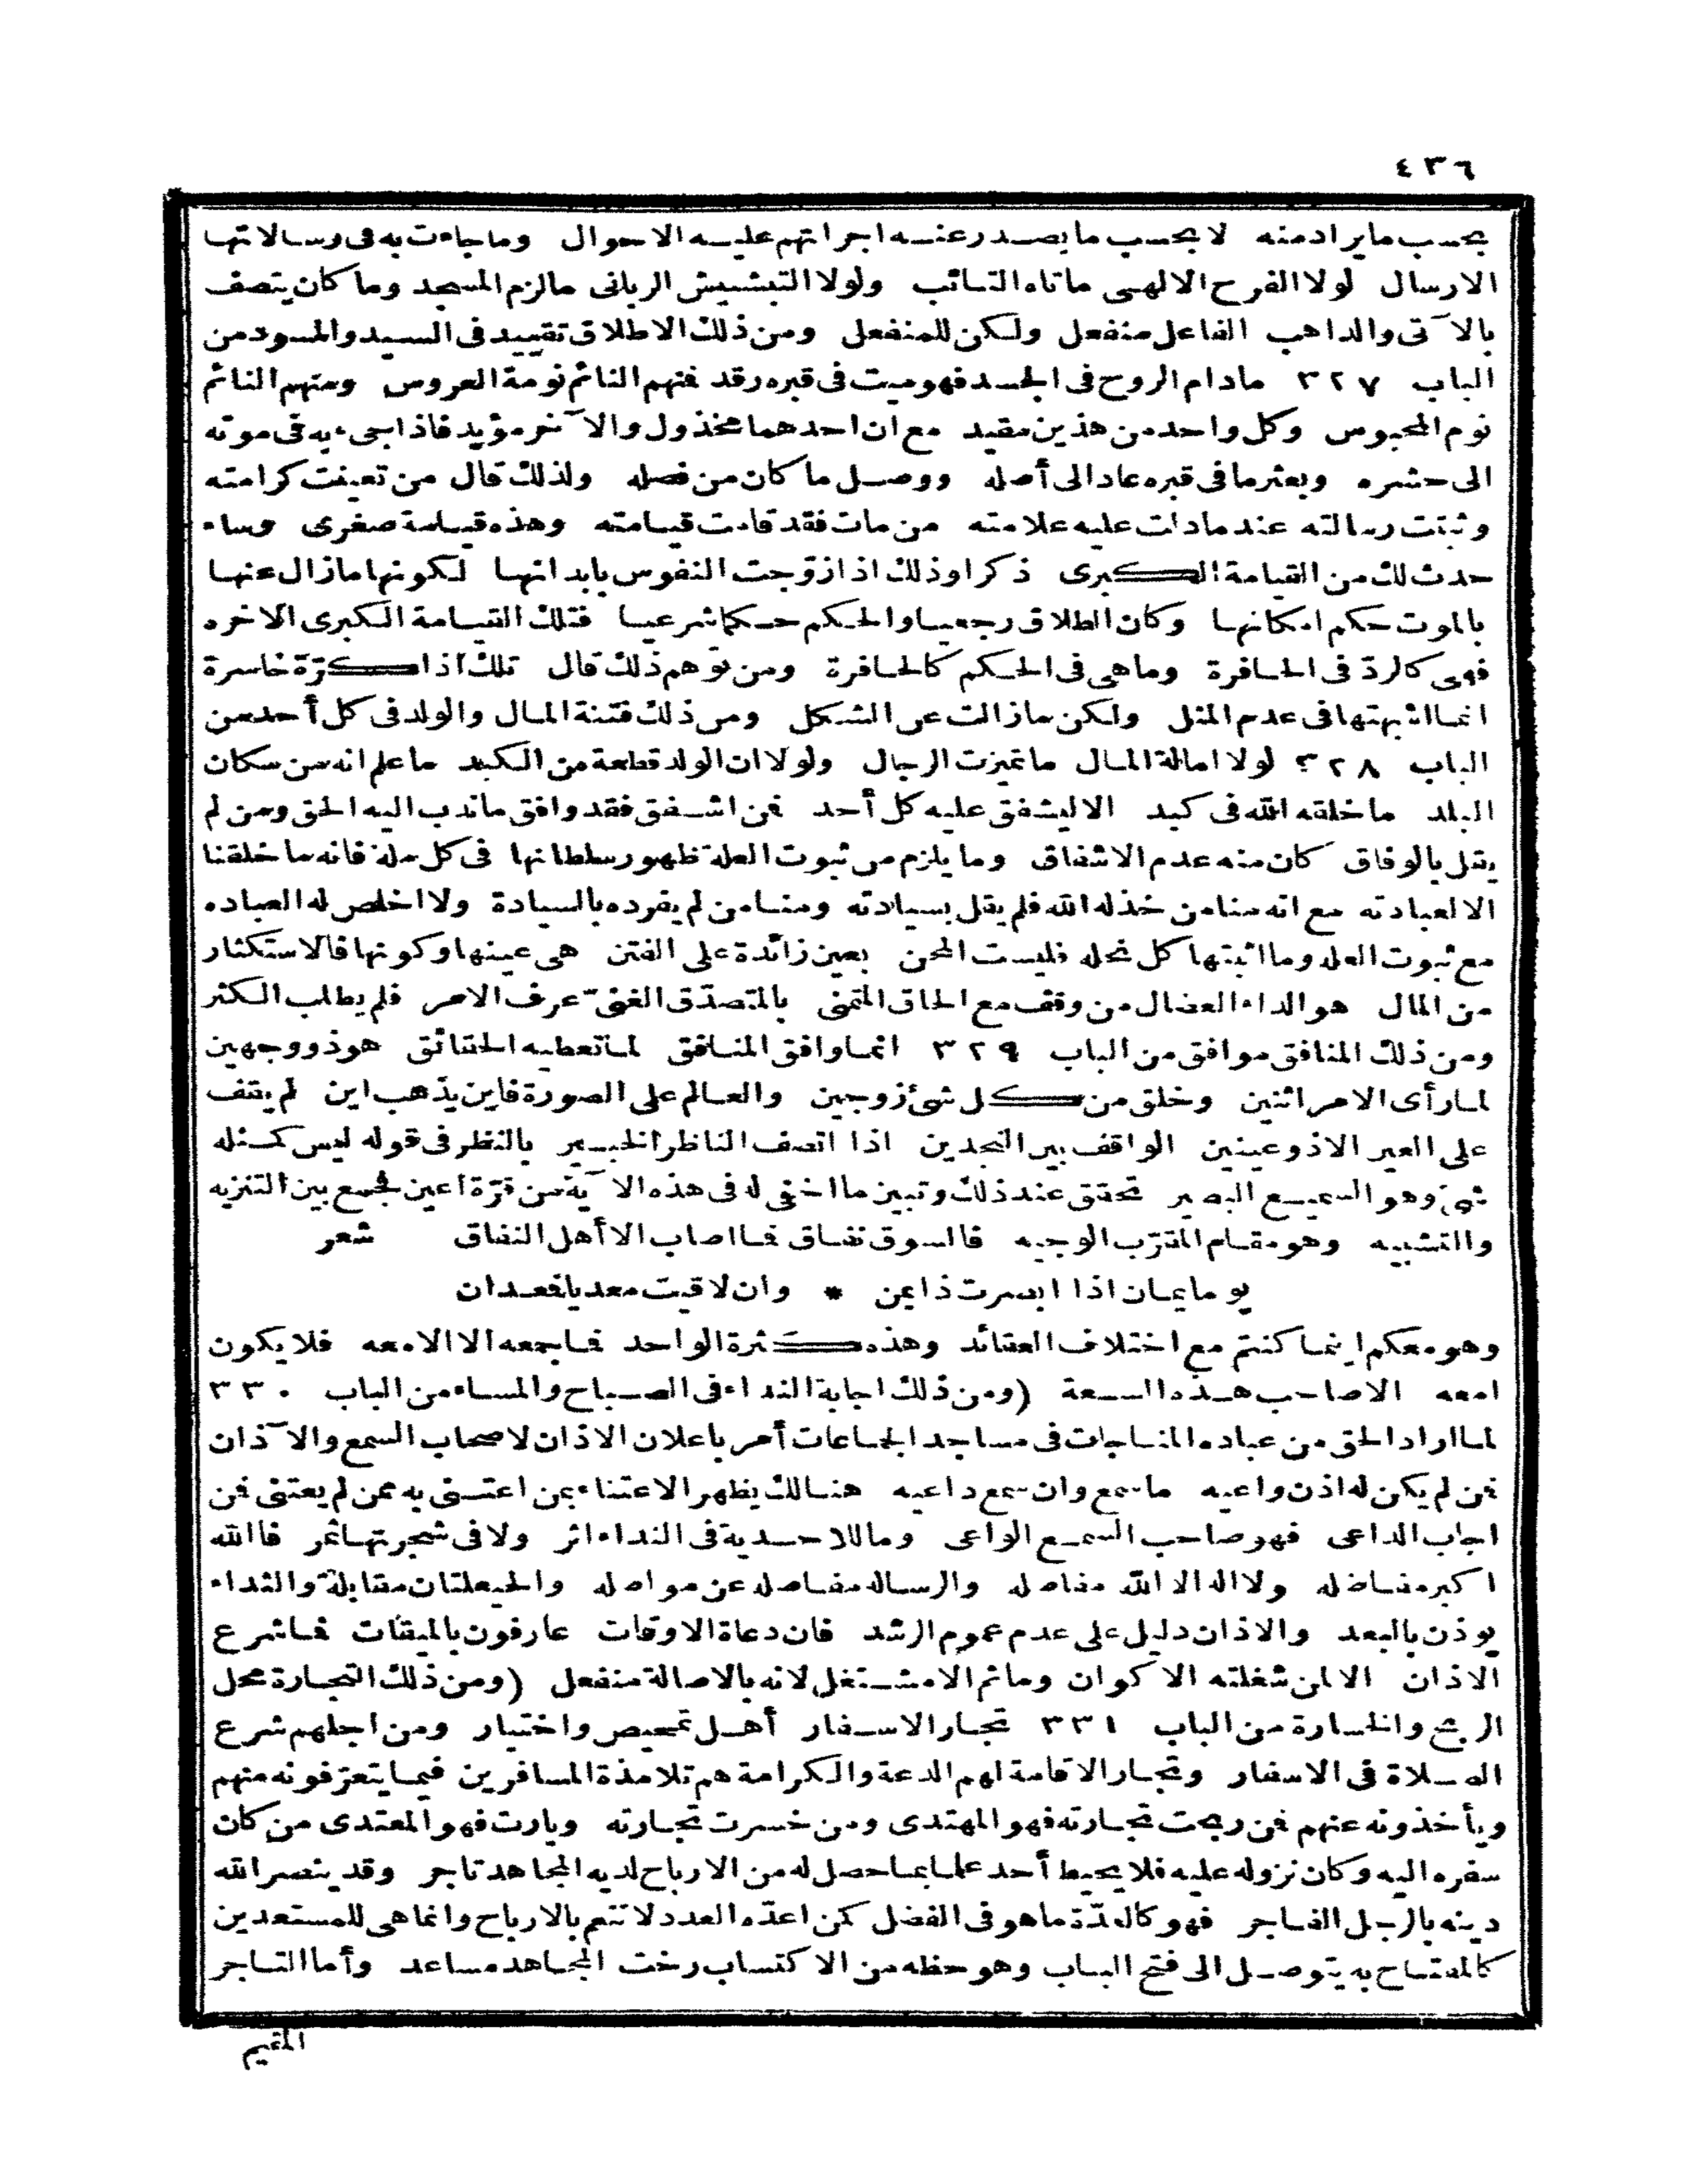 ٤٣٦
بحسب ما يراد منه لا بحسب ما يصدر عنه اجراتهم عليه الاحوال وما جاءت به فى رسالاتها
الارسال لولا الفرح الالهى ماتاه التائب ولولا التبشيش الربانى مالزم المسجد وما كان يتصف
بالآتى والذاهب الفاعل منفعل ولكن للمنفعل ومن ذلك الاطلاق تقييد فى السيد والمسود من
الباب ٣٢٧ مادام الروح فى الجسد فهو ميت فى قبره رقد فمنهم النائم نومة العروس ومنهم النائم
نوم المحبوس وكل واحد من هذين مقيد مع ان احدهما مخذول والآخر مؤيد فاذا جىء به فى موته
الى حشره وبعثر ما فى قبره عاد الى أصله ووصل ما كان من فصله ولذلك قال من تعينت كرامته
وثبتت رسالته عند ما دلت عليه علامته من مات فقد قامت قيامته وهذه قيامة صغرى وساء
حدث لك من القيامة الكبرى ذكرا وذلك اذا زوجت النفوس بابدانها لكونها مازال عنها
بالموت حكم امكانها وكان الطلاق رجعيا والحكم حكما شرعيا فتلك القيامة الكبرى الاخره
فهى كالردّ فى الحافرة وما هى فى الحكم كالحافرة ومن توّهم ذلك قال تلك اذا كرّة خاسرة
انما اشبهتها فى عدم المثل ولكن مازالت عن الشكل ومن ذلك فتنة المال والولد فى كل أحد من
الباب ٣٢٨ لولا امالة المال ما تميزت الرجال ولولا ان الولد قطعة من الكبد ما علم انه من سكان
البلد ما خلقه الله فى كبد الا ليشفق عليه كل أحد فمن اشفق فقد وافق ما ندب اليه الحق ومن لم
يقل بالوفاق كان منه عدم الاشفاق وما يلزم من ثبوت العلة ظهور سلطانها فى كل ملة فانه ما خلقنا
الا لعبادته مع انه منا من خذله الله فلم يقل بسيادته ومنا من لم يفرده بالسيادة ولا اخلص له العباده
مع ثبوت العله وما اثبتها كل نحله فليست المحن بعين زائدة على الفتن هى عينها وكونها فالاستكثار
من المال هو الداء العضال من وقف مع الحاق المتمنى بالمتصدّق الغنىّ عرف الامر فلم يطلب الكثر
ومن ذلك المنافق موافق من الباب ٣٢٩ انما وافق المنافق لما تعطيه الحقائق هو ذو وجهين
لما رأى الامر اثنين وخلق من كل شئ زوجين والعالم على الصورة فاين يذهب اين لم يقف
على العين الا ذو عينين الواقف بين النجدين اذا اتصف الناظر الخبير بالنظر فى قوله ليس كمثله
شئ وهو السميع البصير تحقق عند ذلك وتبين ما اخفى له فى هذه الآية من قرّة اعين فجمع بين التنزيه
والتشبيه وهو مقام المقرّب الوجيه فالسوق نفاق فما اصاب الا أهل النفاق شعر
يوما يمان اذا ابصرت ذا يمن * وان لاقيت معديا فعدان
وهو معكم اينما كنتم مع اختلاف العقائد وهذه كثرة الواحد فما جمعه الا الامعه فلا يكون
امعه الا صاحب هذه السعة (ومن ذلك اجابة النداء فى الصباح والمساء من الباب ٣٣٠
لما اراد الحق من عباده المناجات فى مساجد الجماعات أمر باعلان الاذان لاصحاب السمع والآذان
فمن لم يكن له اذن واعيه ما سمع وان سمع داعيه هنالك يظهر الاعتناء بمن اعتنى به ممن لم يعتنى فمن
اجاب الداعى فهو صاحب السمع الواعى وما للاحدية فى النداء اثر ولا فى شجرتها ثمر فالله
اكبر مفاضله ولا اله الا الله مفاصله والرساله مفاصله عن مواصله والحيعلتان مقابلة والنداء
يوذن بالبعد والاذان دليل على عدم عموم الرشد فان دعاة الاوقات عارفون بالميقات فما شرع
الاذان الا لمن شغلته الاكوان وما ثم الا مشتغل لانه بالاصالة منفعل (ومن ذلك التجارة محل
الربح والخسارة من الباب ٣٣١ تجار الاسفار أهل تمحيص واختبار ومن اجلهم شرع
الصلاة فى الاسفار وتجار الاقامة لهم الدعة والكرامة هم تلامذة المسافرين فيما يتعرّفونه منهم
ويأخذونه عنهم فمن ربحت تجارته فهو المهتدى ومن خسرت تجارته وبارت فهو المعتدى من كان
سفره اليه وكان نزوله عليه فلا يحيط أحد علما بما حصل له من الارباح لديه المجاهد تاجر وقد ينصر الله
دينه بالرجل الفاجر فهو كالعدّة ما هو فى الفضل كمن اعدّه العدد لا تنعم بالارباح وانما هى للمستعدين
كالمفتاح به يتوصل الى فتح الباب وهو حظه من الاكتساب رخت المجاهد مساعد وأما التاجر
المقيم